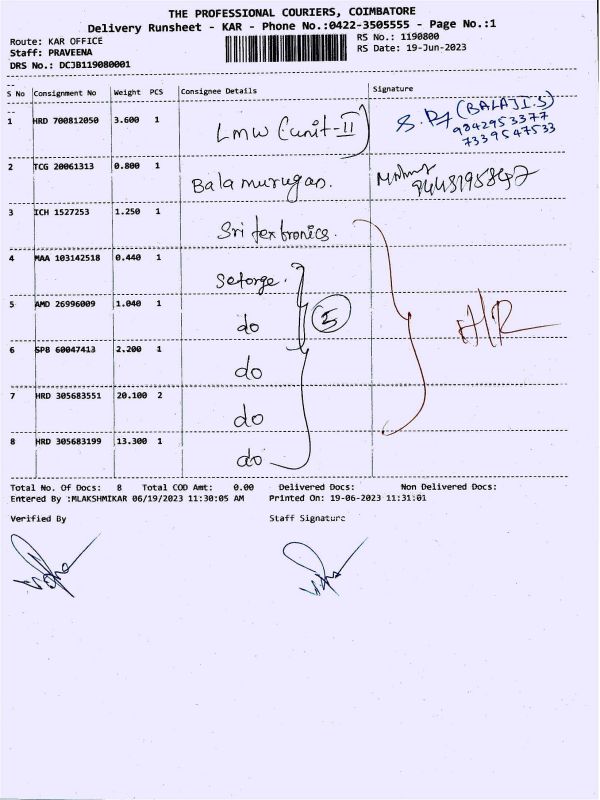 THE PROFESSIONAL COURIERS, COIMBATORE
Delivery Runsheet - KAR - Phone No.:0422-3505555 - Page No.:1
Route: KAR OFFICE
Staff: PRAVEENA
DRS No.: DCJB119080001
RS No.: 1190800
RS Date: 19-Jun-2023
S No Consignment No Weight PCS Consignee Details Signature
1 HRD 700812050 3.600 1 LMW (unit-II) (BALAJI.S)
9842953377
7339547533
2 TCG 20061313 0.800 1 Balamurugan.
3 ICH 1527253 1.250 1 Sri textronics.
4 MAA 103142518 0.440 1 Seforge.
5 AMD 26996009 1.040 1 do 5
6 SPB 60047413 2.200 1 do
7 HRD 305683551 20.100 2 do
8 HRD 305683199 13.300 1 do
Total No. Of Docs: 8 Total COD Amt: 0.00 Delivered Docs: Non Delivered Docs:
Entered By :MLAKSHMIKAR 06/19/2023 11:30:05 AM Printed On: 19-06-2023 11:31:01
Verified By Staff Signature